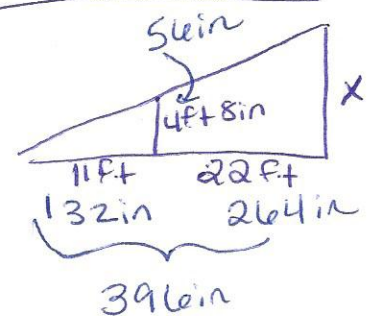 56in
4ft 8in
x
11ft 22ft
132in 264in
396in